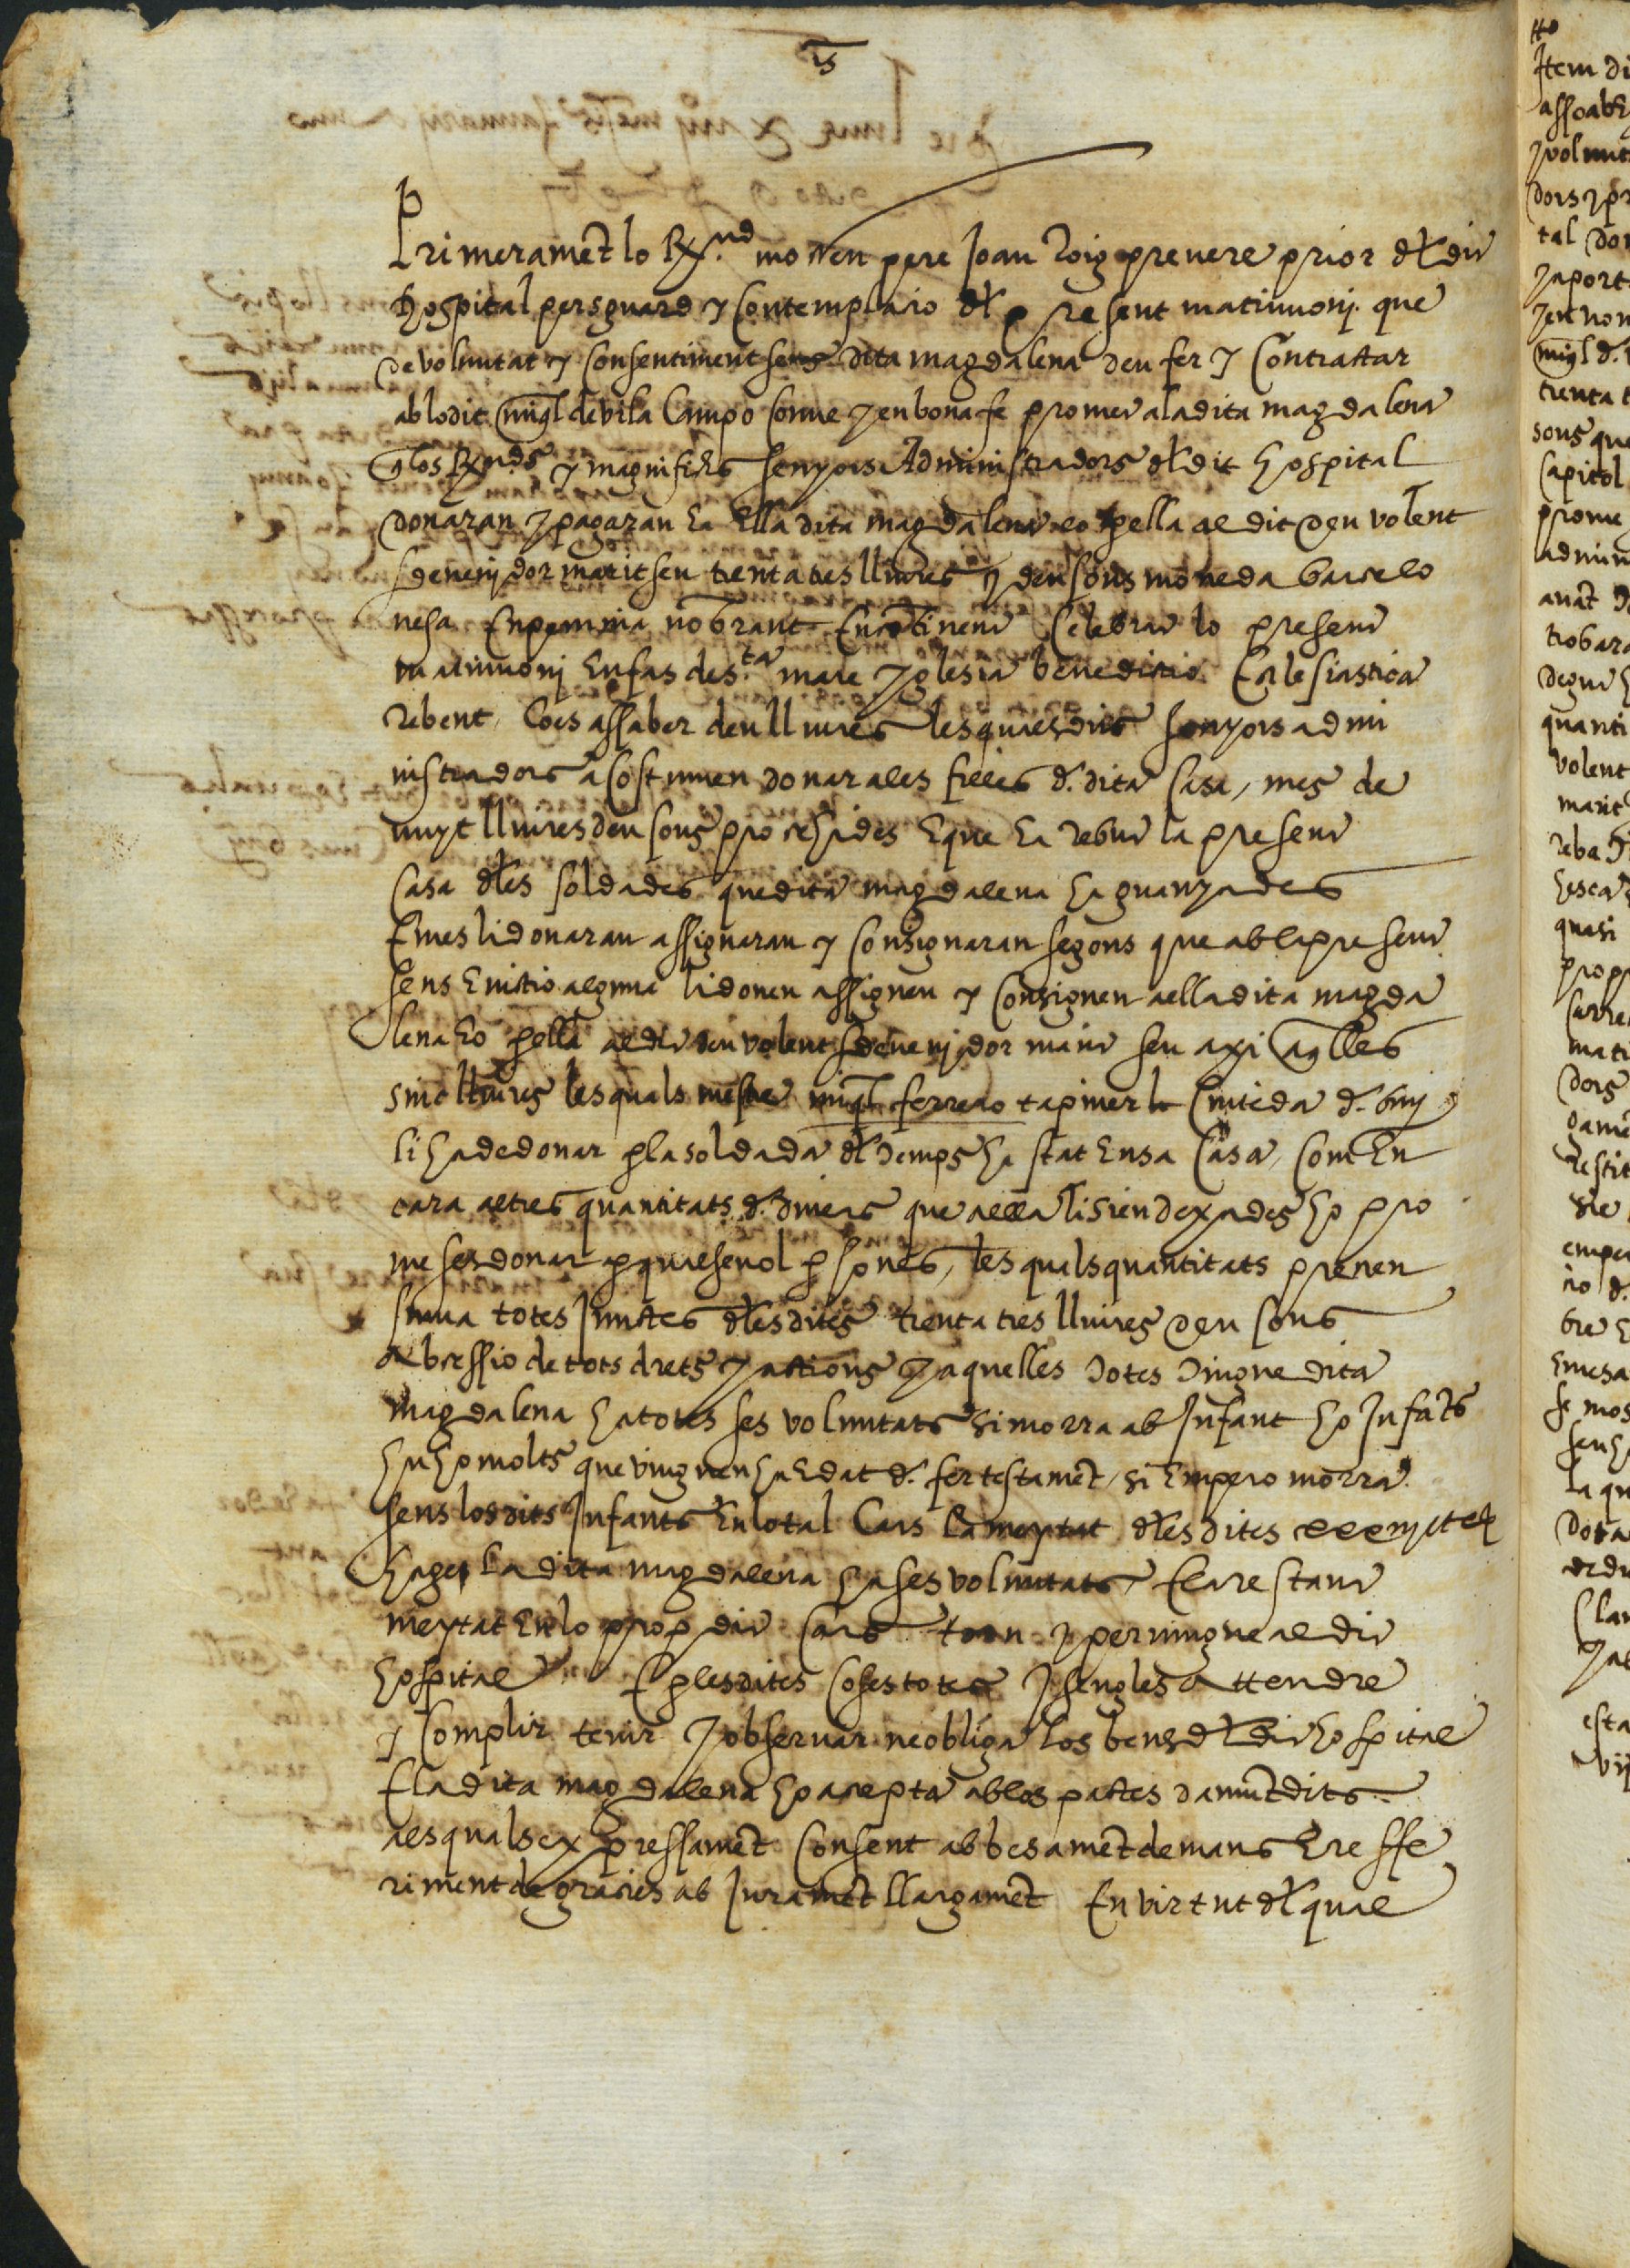 is
Primerament lo Rx.nd mossen pere Joan Roig prevere prior dł dit
hospital per sguard y contemplatio dł present matrimonj que
de voluntat y consentiment seus dita magdalena deu fer y contractar
ab lo dit miql de vila campo conve y en bona fe promet a la dita magdalena
q los Rx.nds y magnifichs senyors Administradors dł dit hospital
donaran y pagaran ha ella dita magdalena eo p ella al dit deu volent
sdevenjdor marit seu trenta tres lliures y deu sous moneda barcelo
nesa En pecunia nobrant Encōtinent celebrat lo present
matrimonj En fas de s.ta mare yglesia benedictio Ecclesiastica
rebent, ço es assaber deu lliures les quals dits senyors admi
nistradors acostumen donar a les filles d. dita casa, mes de
vuyt lliures deu sous procehides E que ha rebut la present
casa dłes soldades que dita magdalena ha guanyades
E mes li donaran assignaran y consignaran segons que ab la present
sens Evictio alguna li donen assignen y consignen a ella dita magda
lena ho p ella al dit deu volent sdevenjdor marit seu axi aqlles
sinc lliures les quals mestre miql ferrero tapiner
li ha de donar p la soldada dł temps ha stat En sa casa, com En
cara altres quantitats d. diners que a ella li sien dexades ho pro
meses donar p qualsevol psones, les quals quantitats prenen
suma totes junctes dłes dites trenta tres lliures deu sous
ab cessio de tots drets y actions y aquelles dotes dingue dita
magdalena ha totes ses voluntats si morra ab Infant ho Infāts
hu ho molts que vingnen ha Edat d. fer testament, si Empero morra
sens los dits Infants En lo tal cars la meytat dłes dites
hage la dita magdalena ha ses voluntats, E la restant
meytat En lo prop dit cars torn y pervingne al dit
hospital E p les dites coses totes y sengles attendre
y complir tenir y observar ne obliga los bens dł dit hospital
E la dita magdalena ho accepta ab los pactes damūt dits
als quals expressament consent ab besamēt de mans E reffe
riment de gracies ab juramēt llargament En virtut dł qual